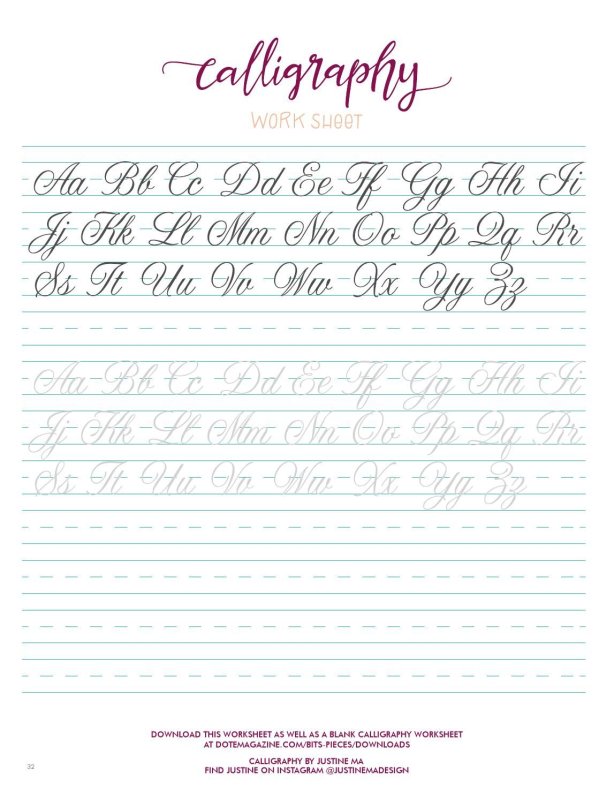 calligraphy
WORK SHEET
Aa Bb Cc Dd Ee Ff Gg Hh Ii
Jj Kk Ll Mm Nn Oo Pp Qq Rr
Ss Tt Uu Vv Ww Xx Yy Zz
Aa Bb Cc Dd Ee Ff Gg Hh Ii
Jj Kk Ll Mm Nn Oo Pp Qq Rr
Ss Tt Uu Vv Ww Xx Yy Zz
DOWNLOAD THIS WORKSHEET AS WELL AS A BLANK CALLIGRAPHY WORKSHEET
AT DOTEMAGAZINE.COM/BITS-PIECES/DOWNLOADS
CALLIGRAPHY BY JUSTINE MA
FIND JUSTINE ON INSTAGRAM @JUSTINEMADESIGN
32